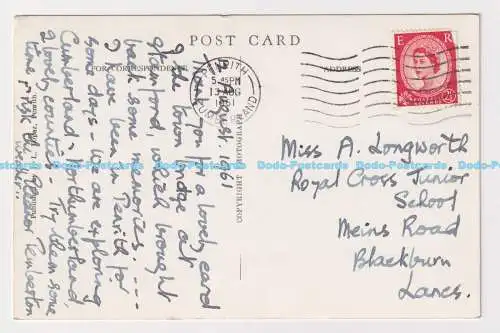 POST CARD
FOR CORRESPONDENCE
ADDRESS
PENRITH
5-45PM
13 AUG
1961
CUMBERLAND
E R
August 1961
Thank you for a lovely card
of the town bridge at
Stamford, which brought
back some memories. ---
I have been in Penrith for
some days - we are exploring
Cumberland & Northumberland,
2 lovely counties - Try them some
time, & risk the
weather..
Eleanor Pemberton
Miss A. Longworth
Royal Cross Junior
School
Meins Road
Blackburn
Lancs.
Dodo-Postcards